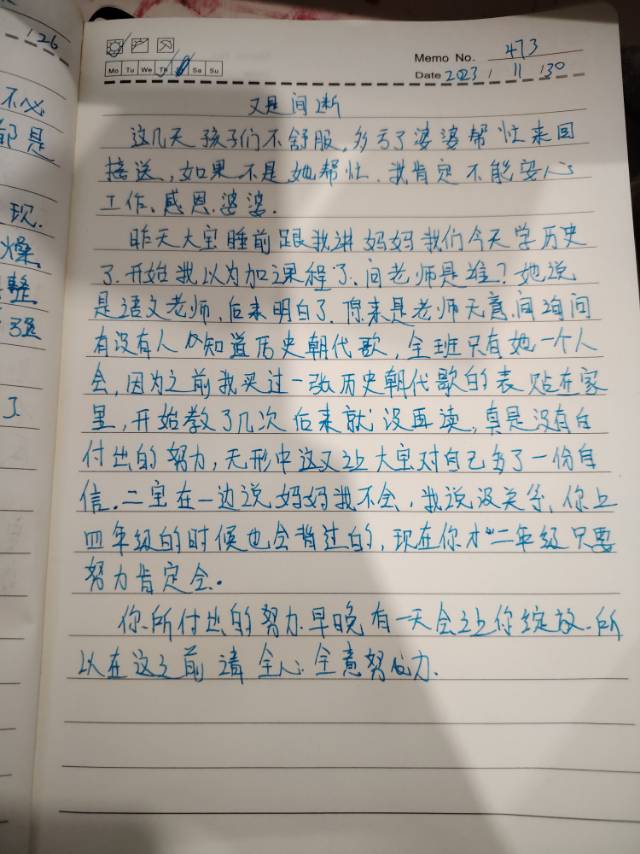 126
不必
都是
现.
燥.
整
强
了
Mo Tu We Th Sa Su
Memo No. 473
Date 2023 / 11 / 30
又是间断
这几天孩子们不舒服,多亏了婆婆帮忙来回
接送,如果不是她帮忙.我肯定不能安心
工作、感恩.婆婆.
昨天大宝睡前跟我讲妈妈我们今天学历史
了.开始我以为加课程了.问老师是谁?她说
是语文老师,后来明白了.原来是老师无意间询问
有没有人知道历史朝代歌,全班只有她一个人
会,因为之前我买过一张历史朝代歌的表贴在家
里,开始教了几次后来就没再读,真是没有白
付出的努力,无形中这又让大宝对自己多了一份自
信.二宝在一边说妈妈我不会,我说没关系,你上
四年级的时候也会背过的,现在你才二年级只要
努力肯定会。
你所付出的努力.早晚有一天会让你绽放.所
以在这之前请全心全意努力.